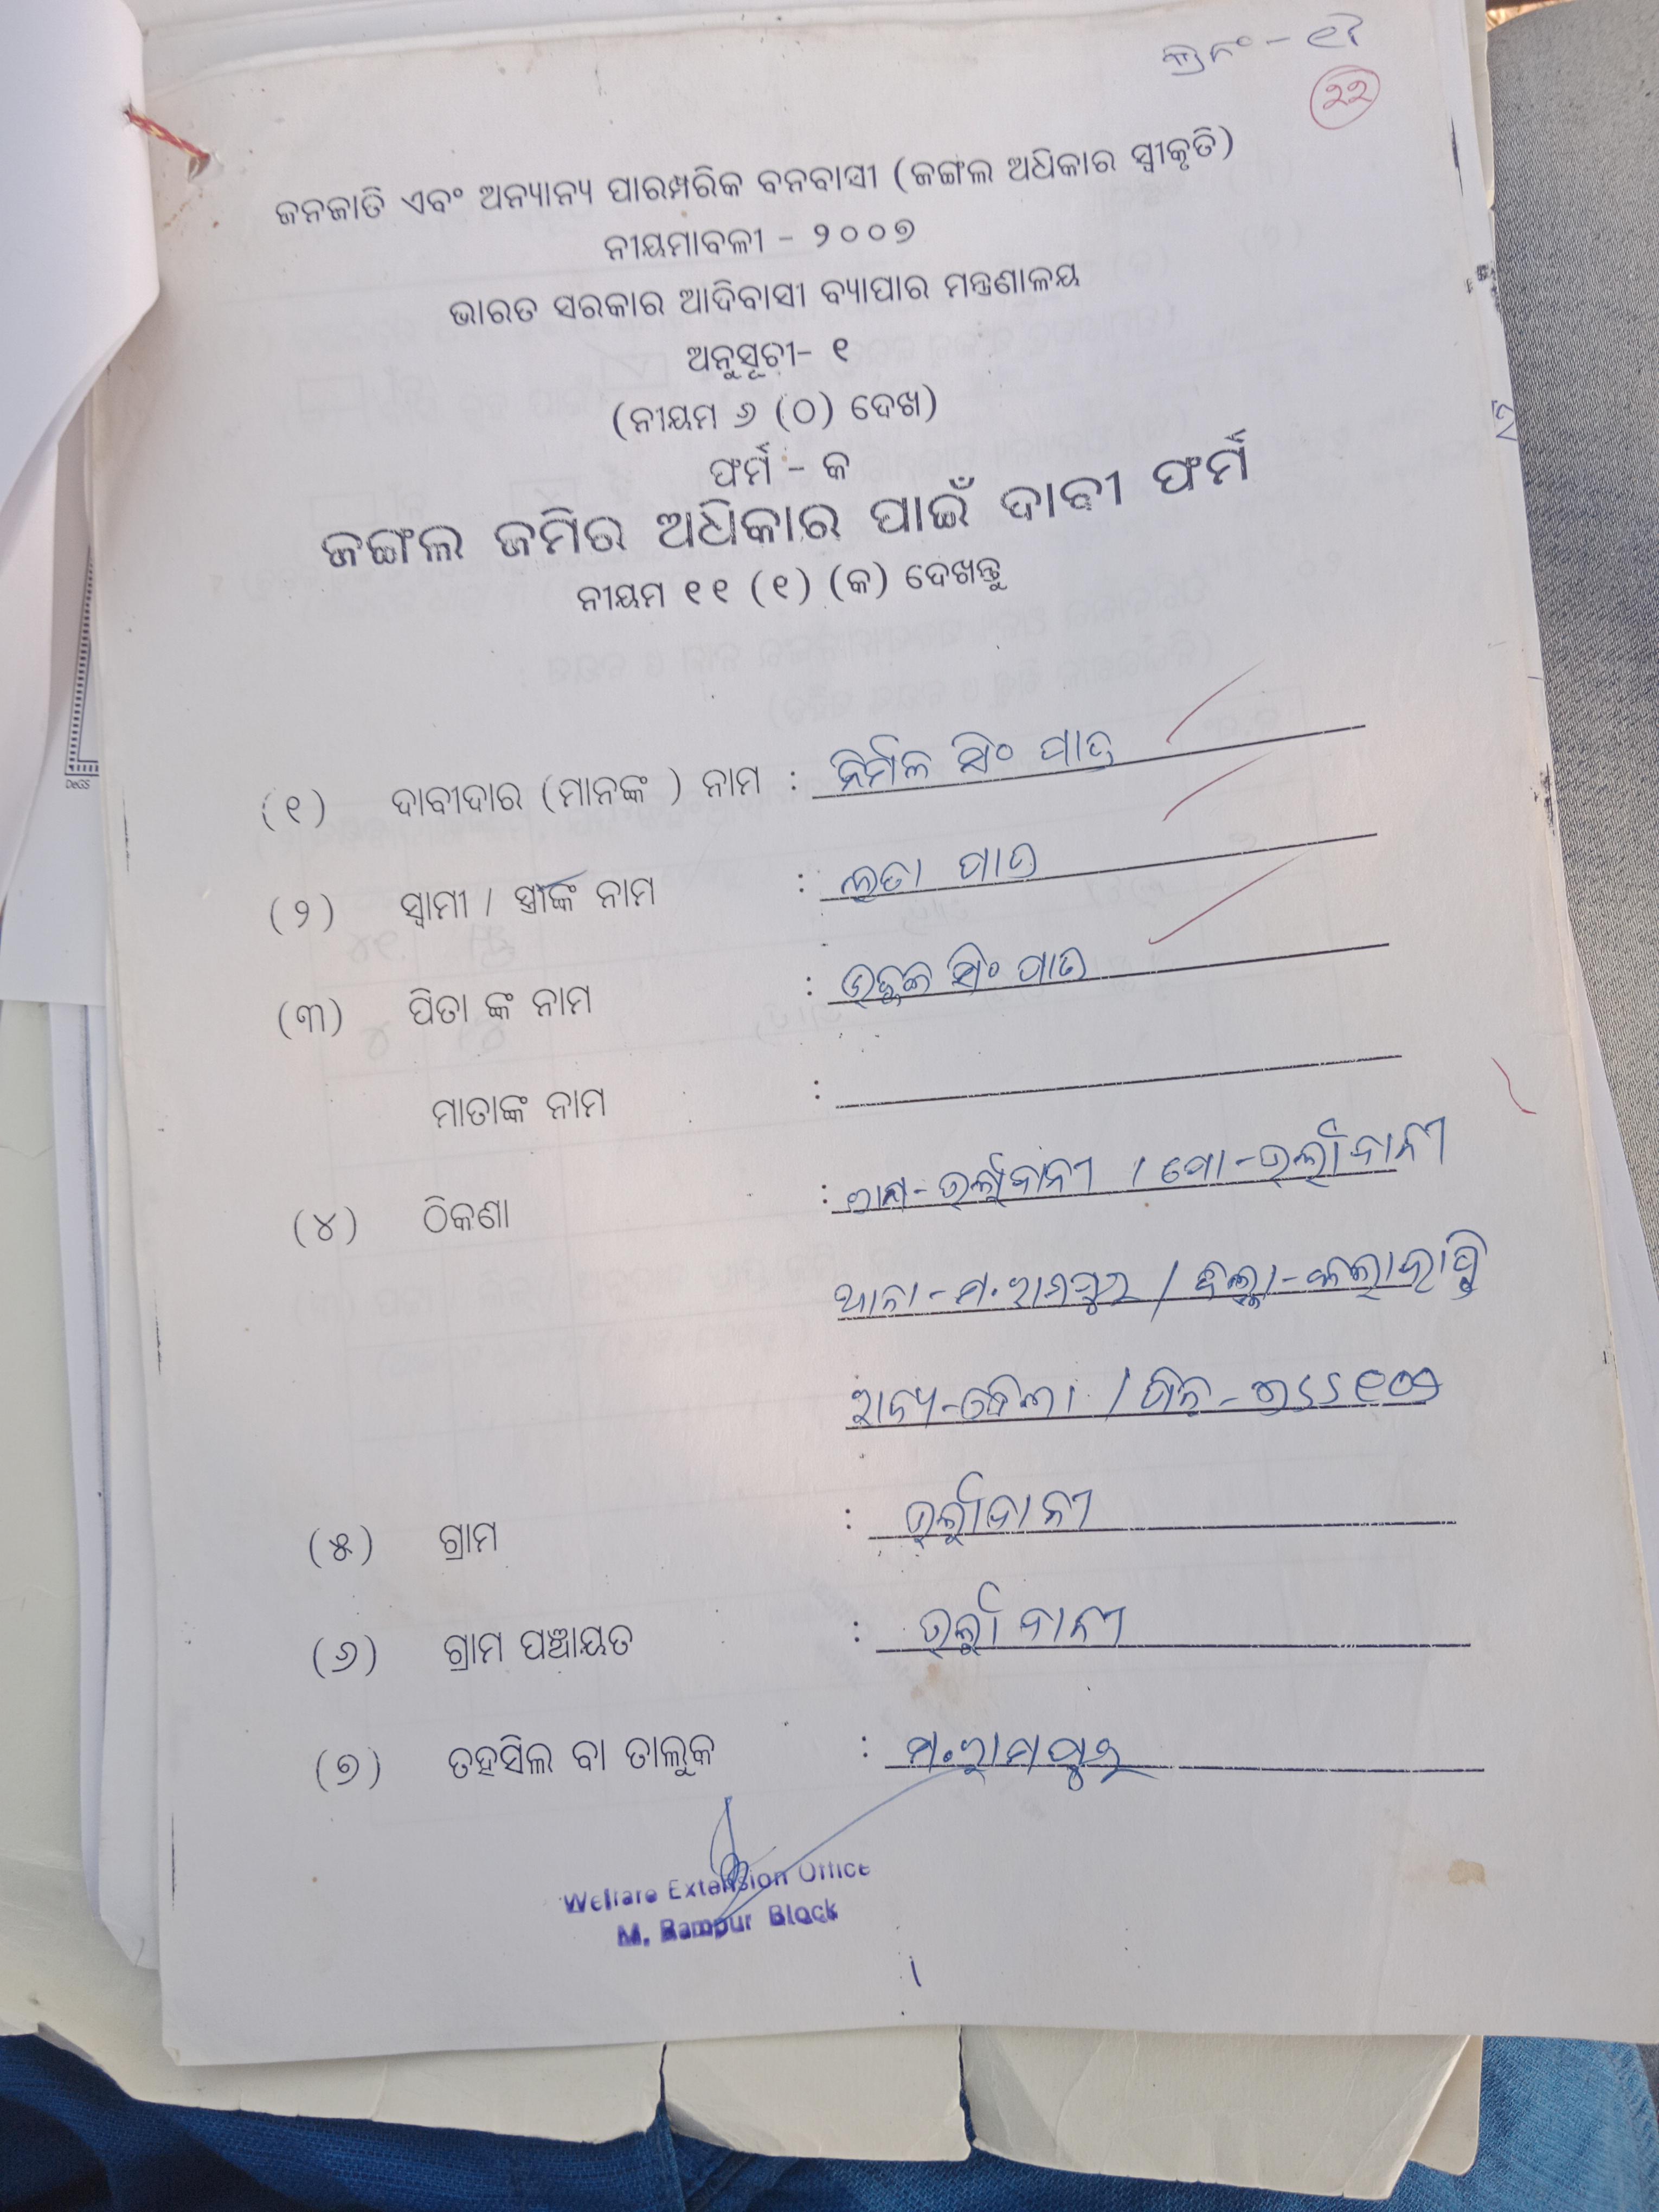 କ୍ର ନଂ - ୧୮
୨୨
ଜନଜାତି ଏବଂ ଅନ୍ୟାନ୍ୟ ପାରମ୍ପରିକ ବନବାସୀ (ଜଙ୍ଗଲ ଅଧିକାର ସ୍ୱୀକୃତି)
ନୀୟମାବଳୀ - ୨୦୦୭
ଭାରତ ସରକାର ଆଦିବାସୀ ବ୍ୟାପାର ମନ୍ତ୍ରଣାଳୟ
ଅନୁସୂଚୀ- ୧
(ନୀୟମ ୬ (ଠ) ଦେଖ)
ଫର୍ମ - କ
ଜଙ୍ଗଲ ଜମିର ଅଧିକାର ପାଇଁ ଦାବୀ ଫର୍ମ
ନୀୟମ ୧୧ (୧) (କ) ଦେଖନ୍ତୁ
(୧) ଦାବୀଦାର (ମାନଙ୍କ ) ନାମ : ନିର୍ମଳ ସିଂ ପାତ୍ର
(୨) ସ୍ୱାମୀ / ସ୍ତ୍ରୀଙ୍କ ନାମ : ଲତା ପାତ୍ର
(୩) ପିତା ଙ୍କ ନାମ : ସିଂ ପାତ୍ର
ମାତାଙ୍କ ନାମ :
(୪) ଠିକଣା :
ଥାନା - ମ. ରାମପୁର / ଜିଲ୍ଲା - କଳାହାଣ୍ଡି
ରାଜ୍ୟ - / ପିନ୍ -
(୫) ଗ୍ରାମ :
(୬) ଗ୍ରାମ ପଞ୍ଚାୟତ :
(୭) ତହସିଲ ବା ତାଲୁକ : ମ. ରାମପୁର
Welfare Extension Office
M. Rampur Block
DeGS